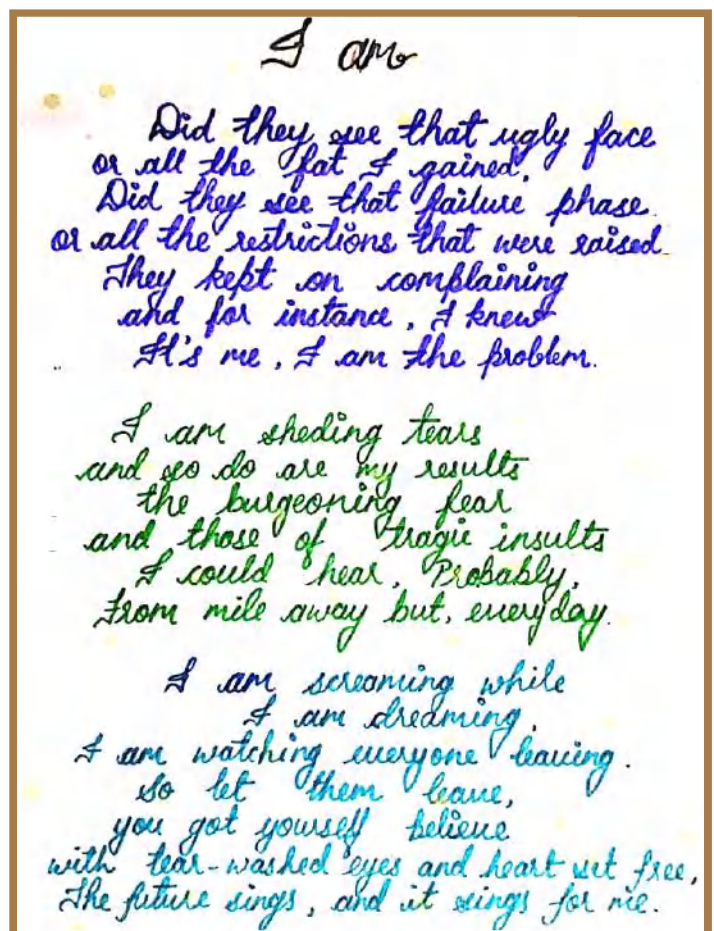 I am
Did they see that ugly face
or all the fat I gained.
Did they see that failure phase.
or all the restrictions that were raised
They kept on complaining
and for instance, I knew
It's me, I am the problem.
I am sheding tears
and so do are my results
the burgeoning fear
and those of tragic insults
I could hear, Probably,
From mile away but, everyday.
I am screaming while
I am dreaming.
I am watching everyone leaving.
so let them leave,
you got yourself believe
with tear-washed eyes and heart set free,
The future sings, and it sings for me.